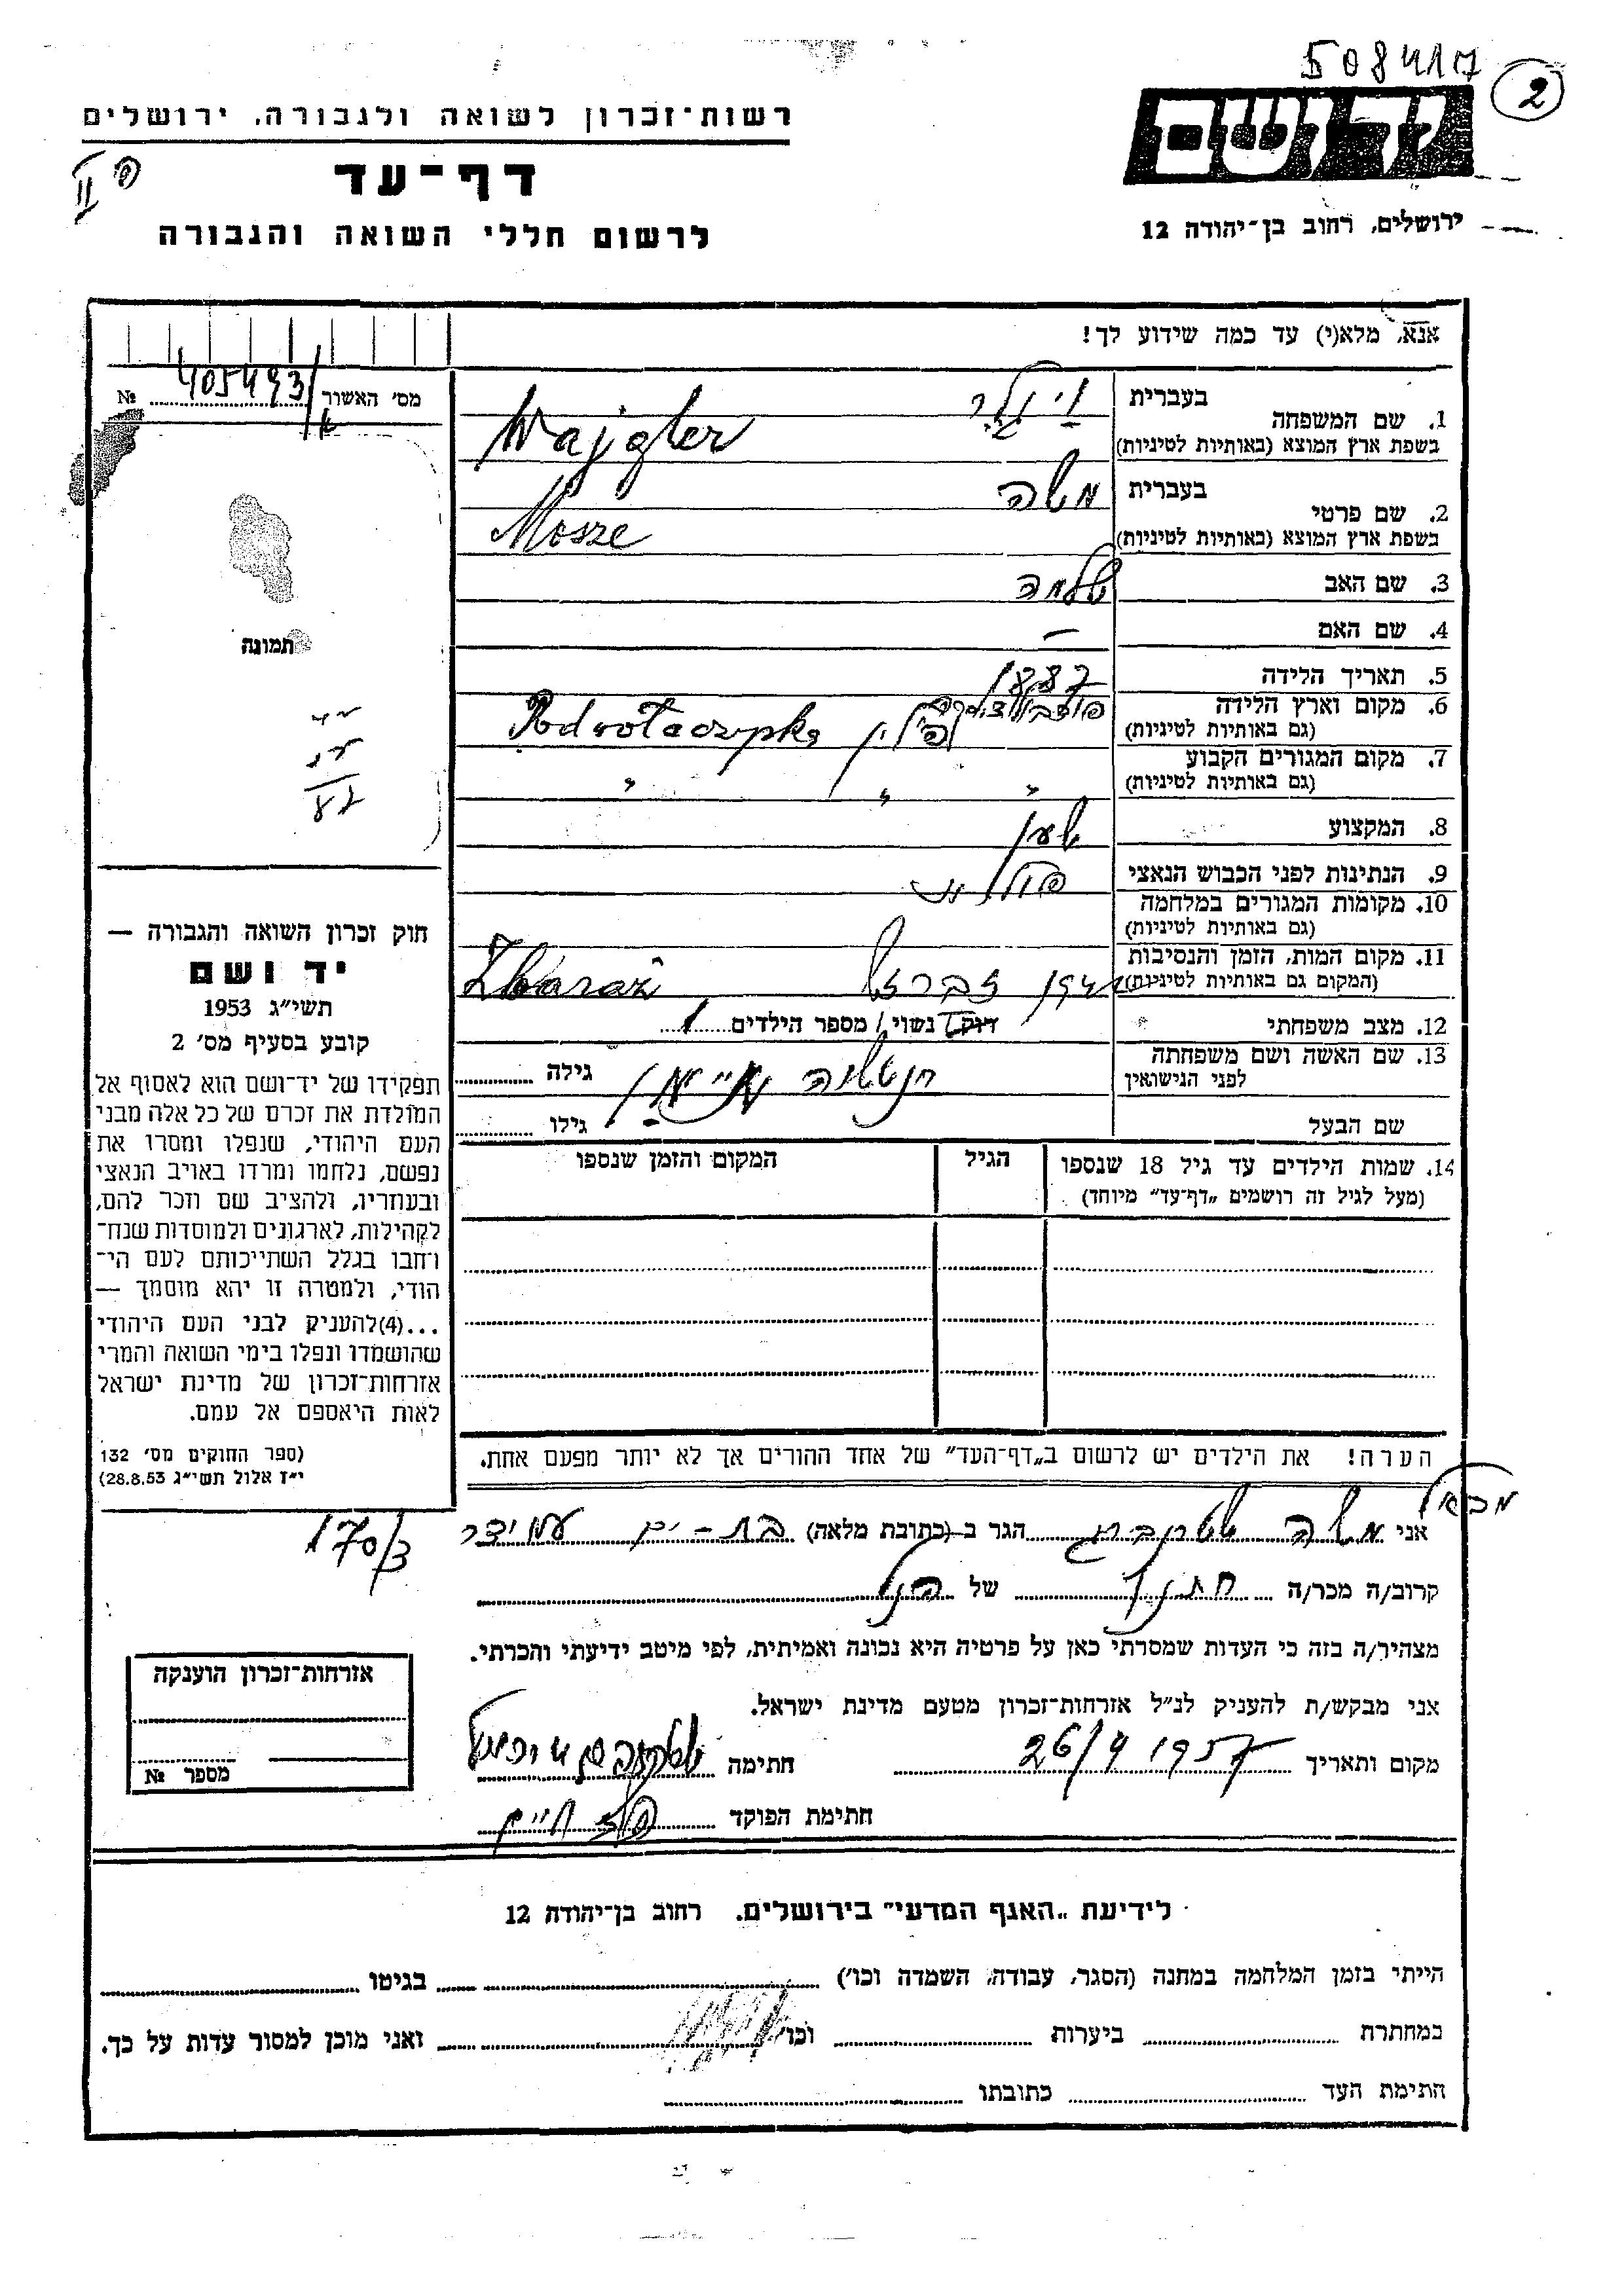 508417
2
יד ושם
ירושלים, רחוב בן־יהודה 12
רשות־זכרון לשואה ולגבורה, ירושלים
דף־עד
לרשום חללי השואה והגבורה
II
אנא, מלא(י) עד כמה שידוע לך!
מס׳ האשור 405493 №
תמונה
87
1. שם המשפחה
בעברית
בשפת ארץ המוצא (באותיות לטיניות) Wajgler
2. שם פרטי
בעברית משה
בשפת ארץ המוצא (באותיות לטיניות) Mosze
3. שם האב שלמה
4. שם האם —
5. תאריך הלידה 1887
6. מקום וארץ הלידה
(גם באותיות לטיניות) פולין
7. מקום המגורים הקבוע
(גם באותיות לטיניות) " " "
8. המקצוע
9. הנתינות לפני הכבוש הנאצי
10. מקומות המגורים במלחמה
(גם באותיות לטיניות)
11. מקום המות, הזמן והנסיבות
(המקום גם באותיות לטיניות) Zbaraż
12. מצב משפחתי רוק נשוי / מספר הילדים 1
13. שם האשה ושם משפחתה
לפני הנישואין גילה
שם הבעל גילו
14. שמות הילדים עד גיל 18 שנספו הגיל המקום והזמן שנספו
(מעל לגיל זה רושמים „דף־עד״ מיוחד)
הערה! את הילדים יש לרשום ב„דף־העד״ של אחד ההורים אך לא יותר מפעם אחת.
חוק זכרון השואה והגבורה —
יד ושם
תשי״ג 1953
קובע בסעיף מס׳ 2
תפקידו של יד־ושם הוא לאסוף אל
המולדת את זכרם של כל אלה מבני
העם היהודי, שנפלו ומסרו את
נפשם, נלחמו ומרדו באויב הנאצי
ובעוזריו, ולהציב שם וזכר להם,
לקהילות, לארגונים ולמוסדות שנח־
רחבו בגלל השתייכותם לעם הי־
הודי, ולמטרה זו יהא מוסמך —
...(4)להעניק לבני העם היהודי
שהושמדו ונפלו בימי השואה והמרי
אזרחות־זכרון של מדינת ישראל
לאות היאספם אל עמם.
(ספר החוקים מס׳ 132
י״ז אלול תשי״ג 28.8.53)
170/3
אני משה הגר ב (כתובת מלאה) בת-ים עמידר
קרוב/ה מכר/ה חתן של הנ״ל
מצהיר/ה בזה כי העדות שמסרתי כאן על פרטיה היא נכונה ואמיתית, לפי מיטב ידיעתי והכרתי.
אני מבקש/ת להעניק לנ״ל אזרחות־זכרון מטעם מדינת ישראל.
מקום ותאריך 26/4 1957 חתימה
חתימת הפוקד
אזרחות־זכרון הוענקה
מספר №
לידיעת „האגף המדעי״ בירושלים. רחוב בן־יהודה 12
הייתי בזמן המלחמה במחנה (הסגר, עבודה, השמדה וכו׳) בגיטו
במחתרת ביערות וכו׳ ואני מוכן למסור עדות על כך.
חתימת העד כתובתו